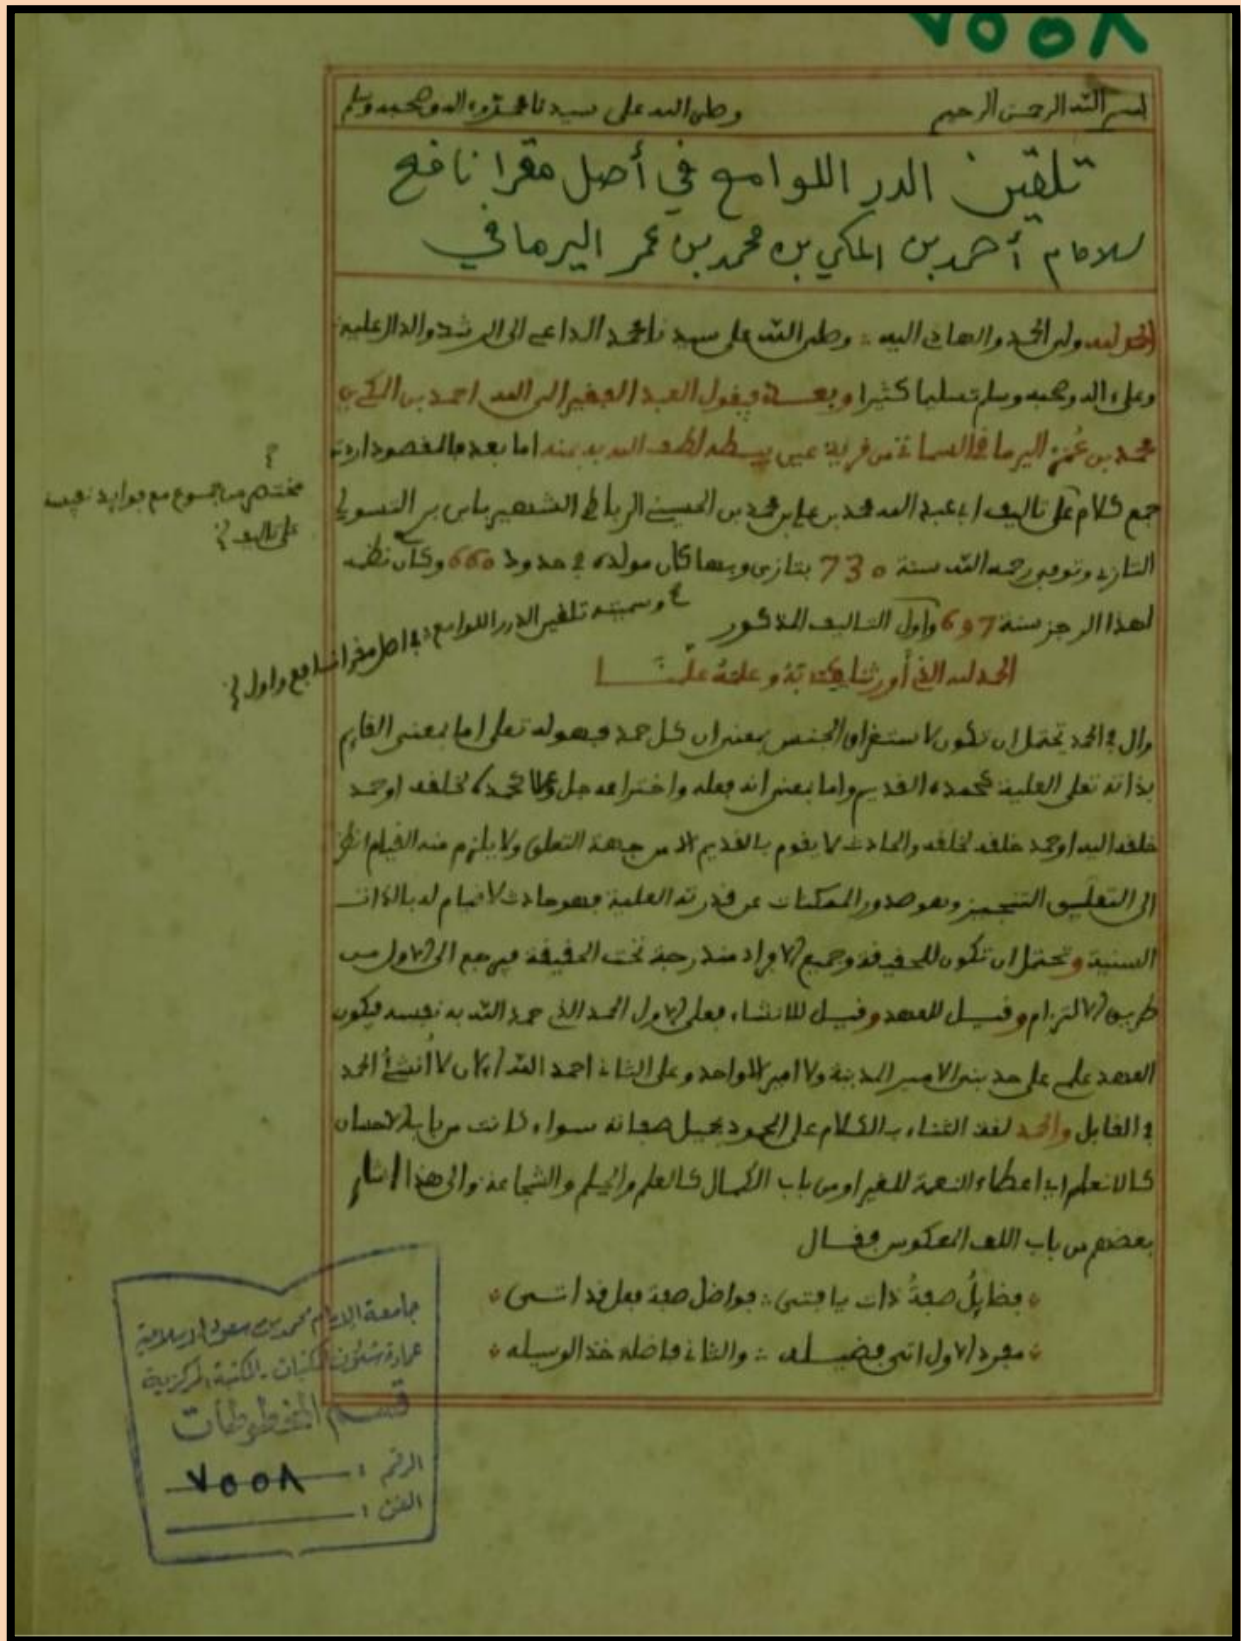 ٧٥٥٨
بسم الله الرحمن الرحيم وصلى الله على سيدنا محمد وءاله وصحبه وسلم
تلقين الدر اللوامع في أصل مقرا نافع
للامام أحمد بن المكي بن محمد بن عمر اليرماني
الحمد لله ولي الحمد والهادي اليه وصلى الله على سيدنا محمد الداعي الى الرشد والدال عليه
وعلى ءاله وصحبه وسلم تسليما كثيرا وبعد فيقول العبد الفقير الى الله احمد بن المكي بن
محمد بن عُمَر اليرماني من قرية عين لطف الله به بمنه اما بعد فالمقصود اردت
جمع كلام على تاليف ابي عبد الله محمد بن علي بن محمد بن الحسين الرباطي الشهير بابن بري التسولي
التازي وتوفي رحمه الله سنة 730 بتازى وبها كان مولده في حدود 660 وكان نظمه
لهذا الرجز سنة 697 وأول التاليف المذكور
مختصر من مجموع مع فوايد نفيسة
على تاليف
وسميته تلقين الدرر اللوامع في اصل مقرا نافع واول
الحمد لله الذي أورثنا كتابه وعلمه علمنا
وال في الحمد يحتمل ان تكون لاستغراق الجنس بمعنى ان كل حمد فهو له تعلى اما بمعنى القايم
بذاته تعلى العلية كحمده القديم واما بمعنى انه فعله واختراعه جل وعلا كحمده لخلقه او حمد
خلقه اليه او حمد خلقه لخلقه والحادث لا يقوم بالقديم الا من جهة التعلق ولا يلزم منه القيام
الى التعليق التنجيز وهو صدور الممكنات عن قدرته العلية فهو حادث لا قيام له بالذات
السنية وتحتمل ان تكون للحقيقة وجميع الافراد مندرجة تحت الحقيقة فيرجع الى الاول من
طريق الالتزام وقيل للعهد وقيل للانشاء فعلى الاول الحمد الذي حمد الله به نفسه فيكون
العهد علمي على حد بنى الامير المدينة ولا امير الا واحد وعلى الثاني احمد الله الان لا أنشئ الحمد
في القابل والحمد لغة الثناء بالكلام على المحمود بجميل صفاته سواء كانت من باب الاحسان
كالانعام اي اعطاء النعمة للغير او من باب الكمال كالعلم والحلم والشجاعة والى هذا اشار
بعضهم من باب اللف المعكوس فقال
فضايلُ صفةُ ذات يا فتى فواضل صفة فعل قد اتى
مفرد الاول اتى فضيله والثاني فاضلة خذ الوسيله
جامعة الامام محمد بن سعود الاسلامية
عمادة شئون المكتبات - المكتبة المركزية
قسم المخطوطات
الرقم : ٧٥٥٨
الفن :